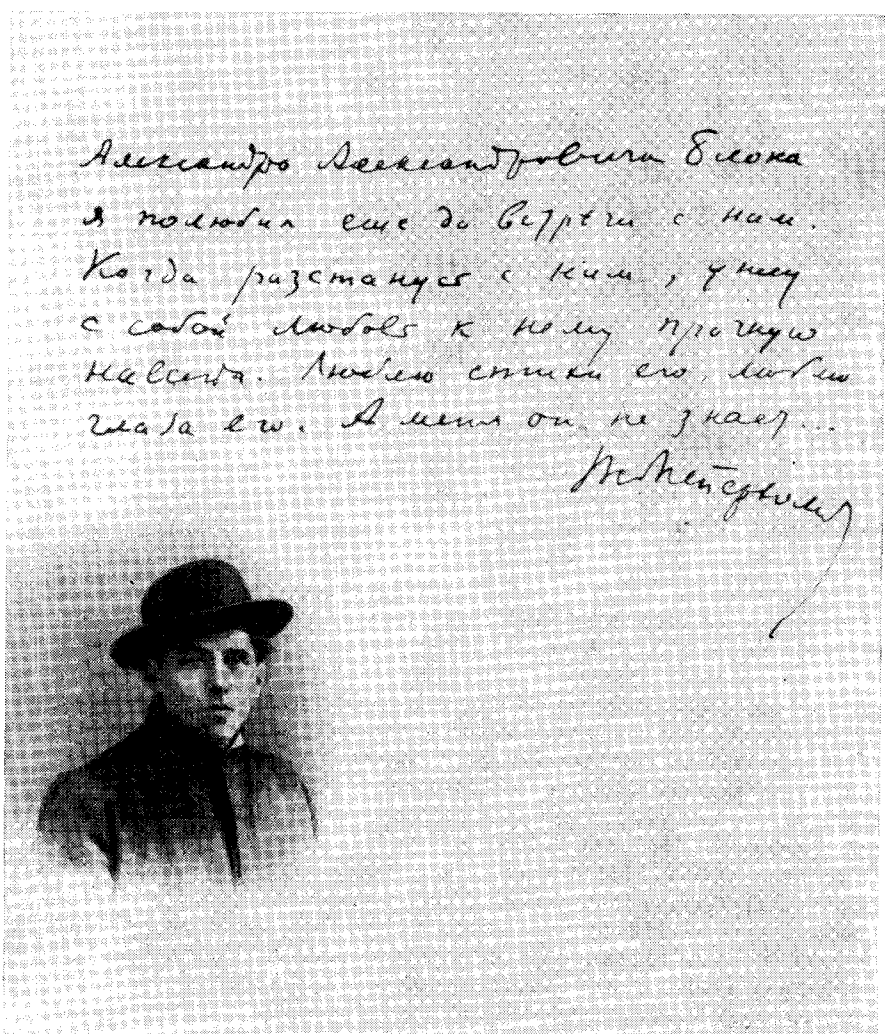 Александра Александровича Блока
я полюбил еще до встречи с ним.
Когда разстануся с ним, унесу
с собой любовь к нему прочную
навсегда. Люблю стихи его, люблю
глаза его. А меня он не знает...
Вс Мейерхольд